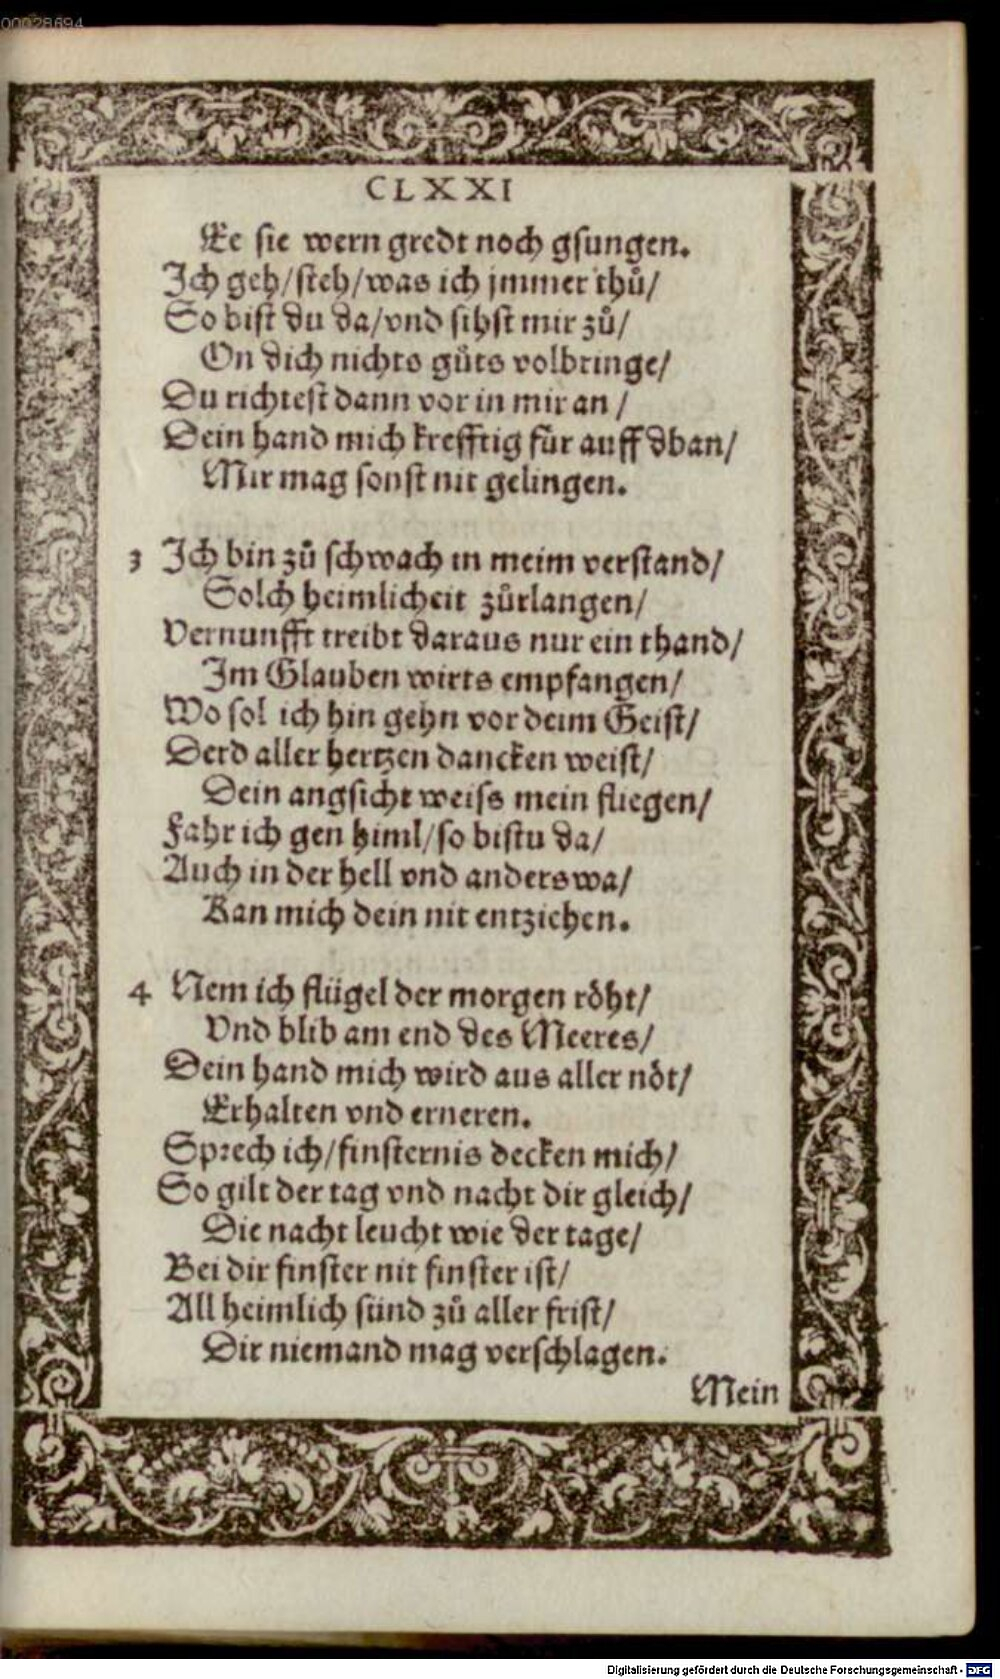 00028694
CLXXI
Ee sie wern gredt noch gsungen.
Ich geh/steh/was ich jmmer thů/
So bist du da/vnd sihst mir zů/
On dich nichts gůts volbringe/
Du richtest dann vor in mir an /
Dein hand mich krefftig für auff dban/
Mir mag sonst nit gelingen.
3 Ich bin zů schwach in meim verstand/
Solch heimlicheit zůrlangen/
Vernunfft treibt daraus nur ein thand/
Im Glauben wirts empfangen/
Wo sol ich hin gehn vor deim Geist/
Derd aller hertzen dancken weist/
Dein angsicht weiss mein fliegen/
Fahr ich gen himl/so bistu da/
Auch in der hell vnd anderswa/
Kan mich dein nit entziehen.
4 Nem ich flügel der morgen röht/
Vnd blib am end des Meeres/
Dein hand mich wird aus aller nöt/
Erhalten vnd erneren.
Sprech ich/finsternis decken mich/
So gilt der tag vnd nacht dir gleich/
Die nacht leucht wie der tage/
Bei dir finster nit finster ist/
All heimlich sünd zů aller frist/
Dir niemand mag verschlagen.
Mein
Digitalisierung gefördert durch die Deutsche Forschungsgemeinschaft - DFG